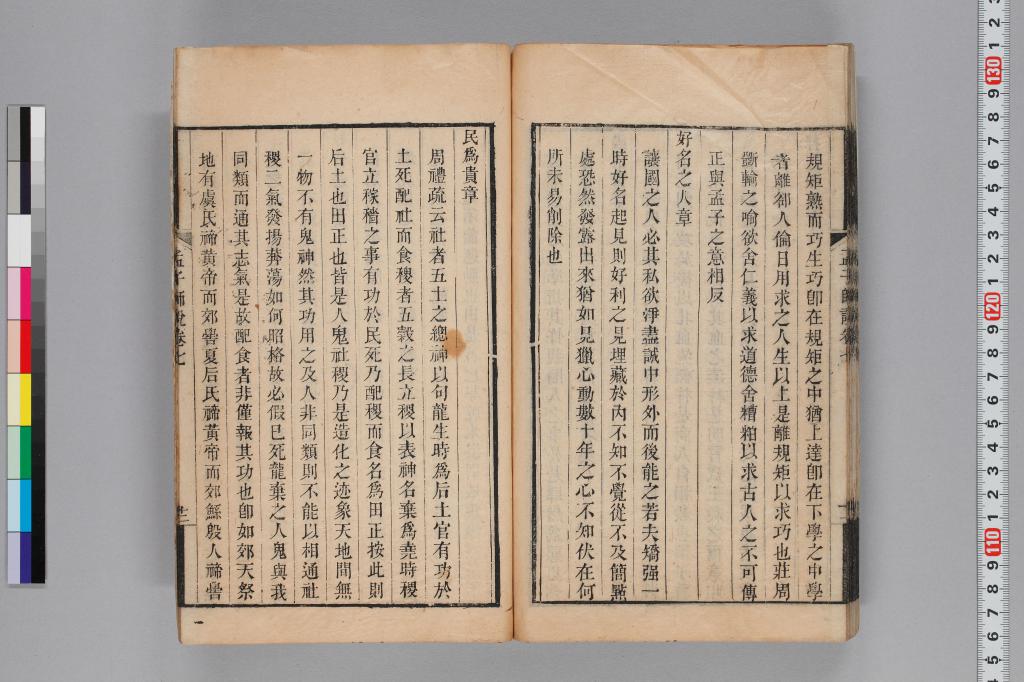 規矩熟而巧生巧卽在規矩之中猶上達卽在下學之中學
者離卻人倫日用求之人生以上是離規矩以求巧也莊周
斲輪之喻欲舍仁義以求道德舍糟粕以求古人之不可傳
正與孟子之意相反
好名之人章
讓國之人必其私欲淨盡誠中形外而後能之若夫矯强一
時好名起見則好利之見埋藏於內不知不覺從不及簡點
處恐然發露出來猶如見獵心動數十年之心不知伏在何
所未易削除也
民爲貴章
周禮疏云社者五土之總神以句龍生時爲后土官有功於
土死配社而食稷者五穀之長立稷以表神名棄爲堯時稷
官立稼穡之事有功於民死乃配稷而食名爲田正按此則
后土也田正也皆是人鬼社稷乃是造化之迹象天地間無
一物不有鬼神然其功用之及人非同類則不能以相通社
稷二氣發揚蕩蕩如何昭格故必假已死龍棄之人鬼與我
同類而通其志氣是故配食者非僅報其功也卽如郊天祭
地有虞氏禘黃帝而郊嚳夏后氏禘黃帝而郊鯀殷人禘嚳
孟子師說卷七
十二